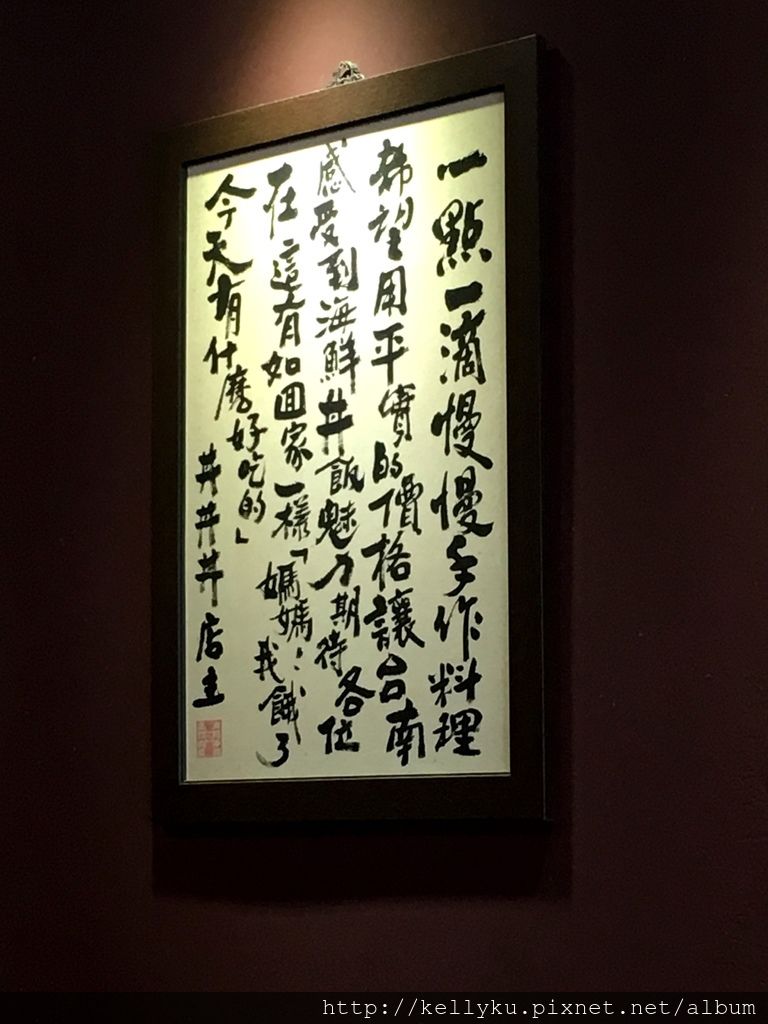 一點一滴慢慢手作料理
希望用平實的價格讓台南
感受到海鮮丼飯魅力期待各位
在這有如回家一樣「媽媽！我餓了
今天有什麼好吃的」
丼丼丼店主
http://kellyku.pixnet.net/album